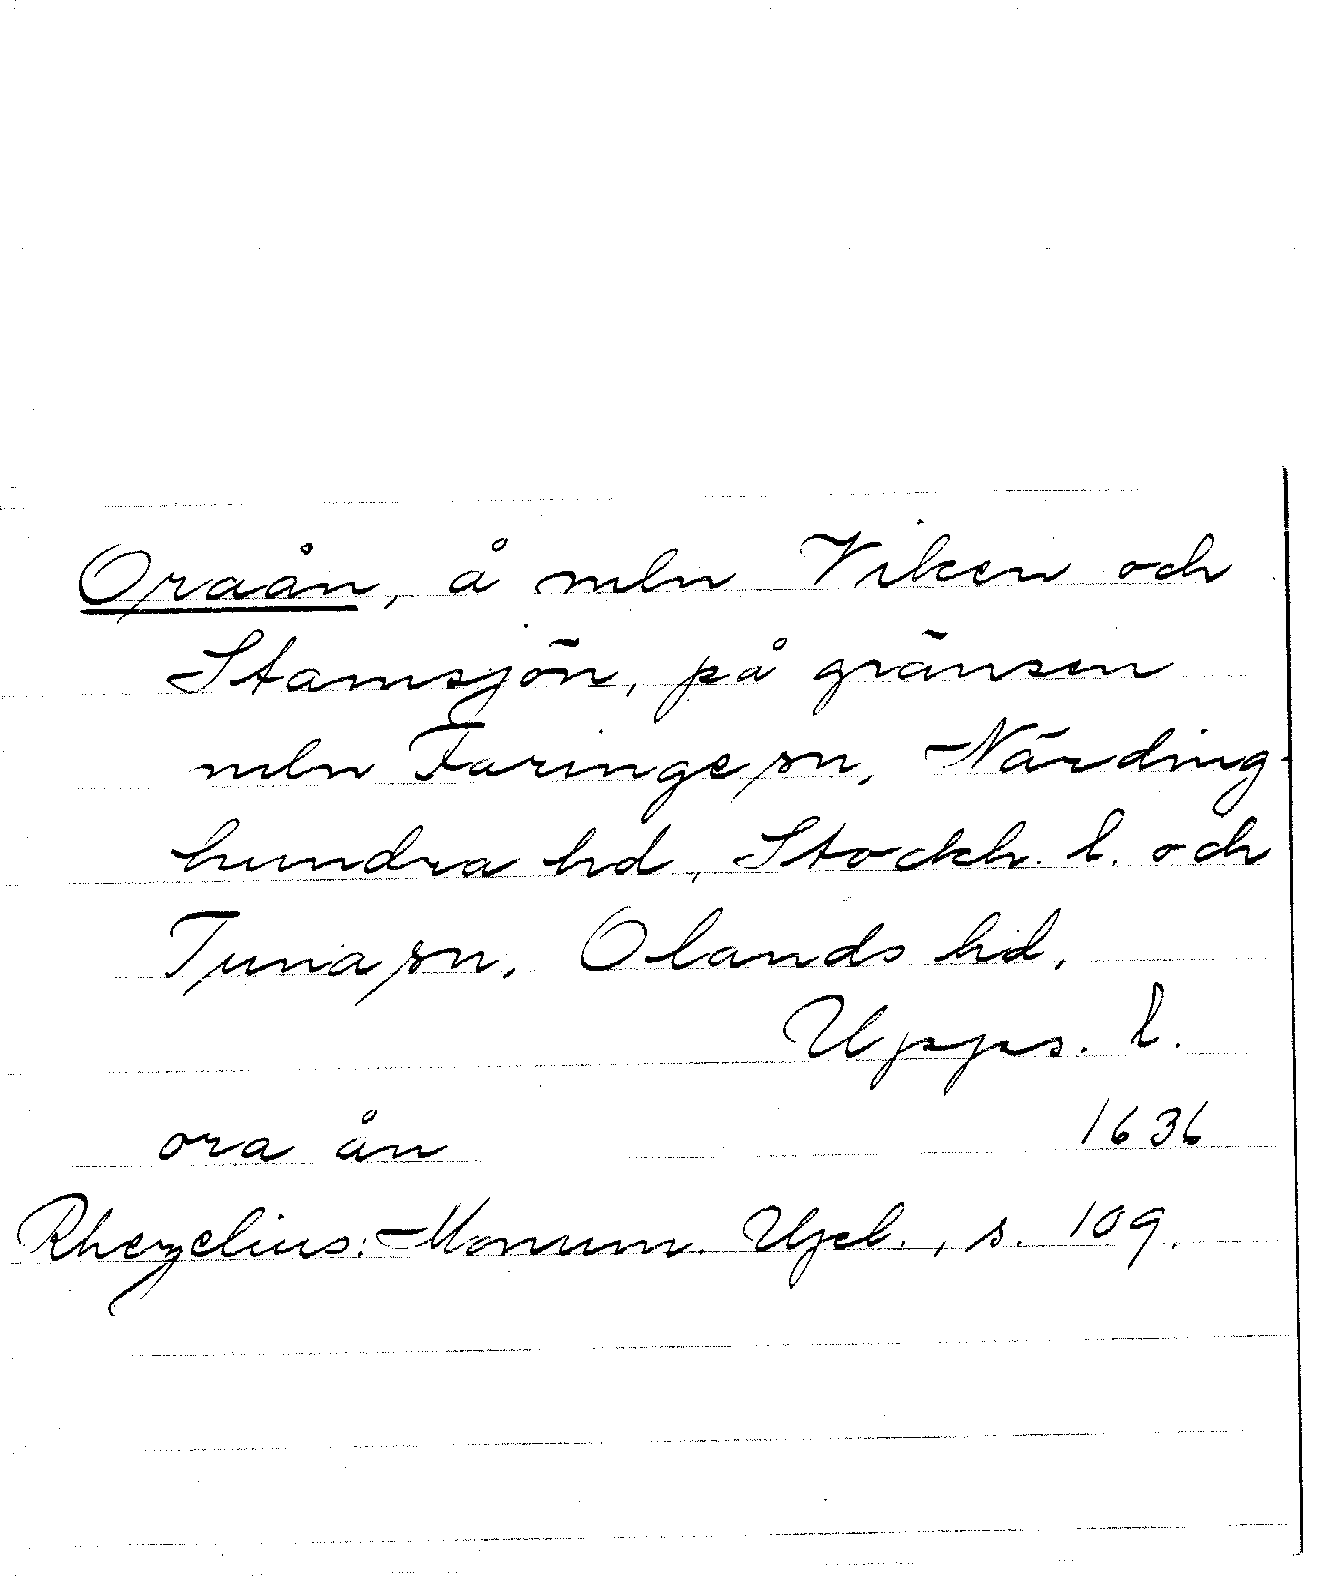 Oraån, å mln Viken och
Stamsjön, på gränsen
mln Faringe sn, Närding-
hundra hd, Stockh. l. och
Tuna sn, Olands hd,
Upps. l.
ora ån 1636
Rhezelius: Monum. Upl., s. 109.